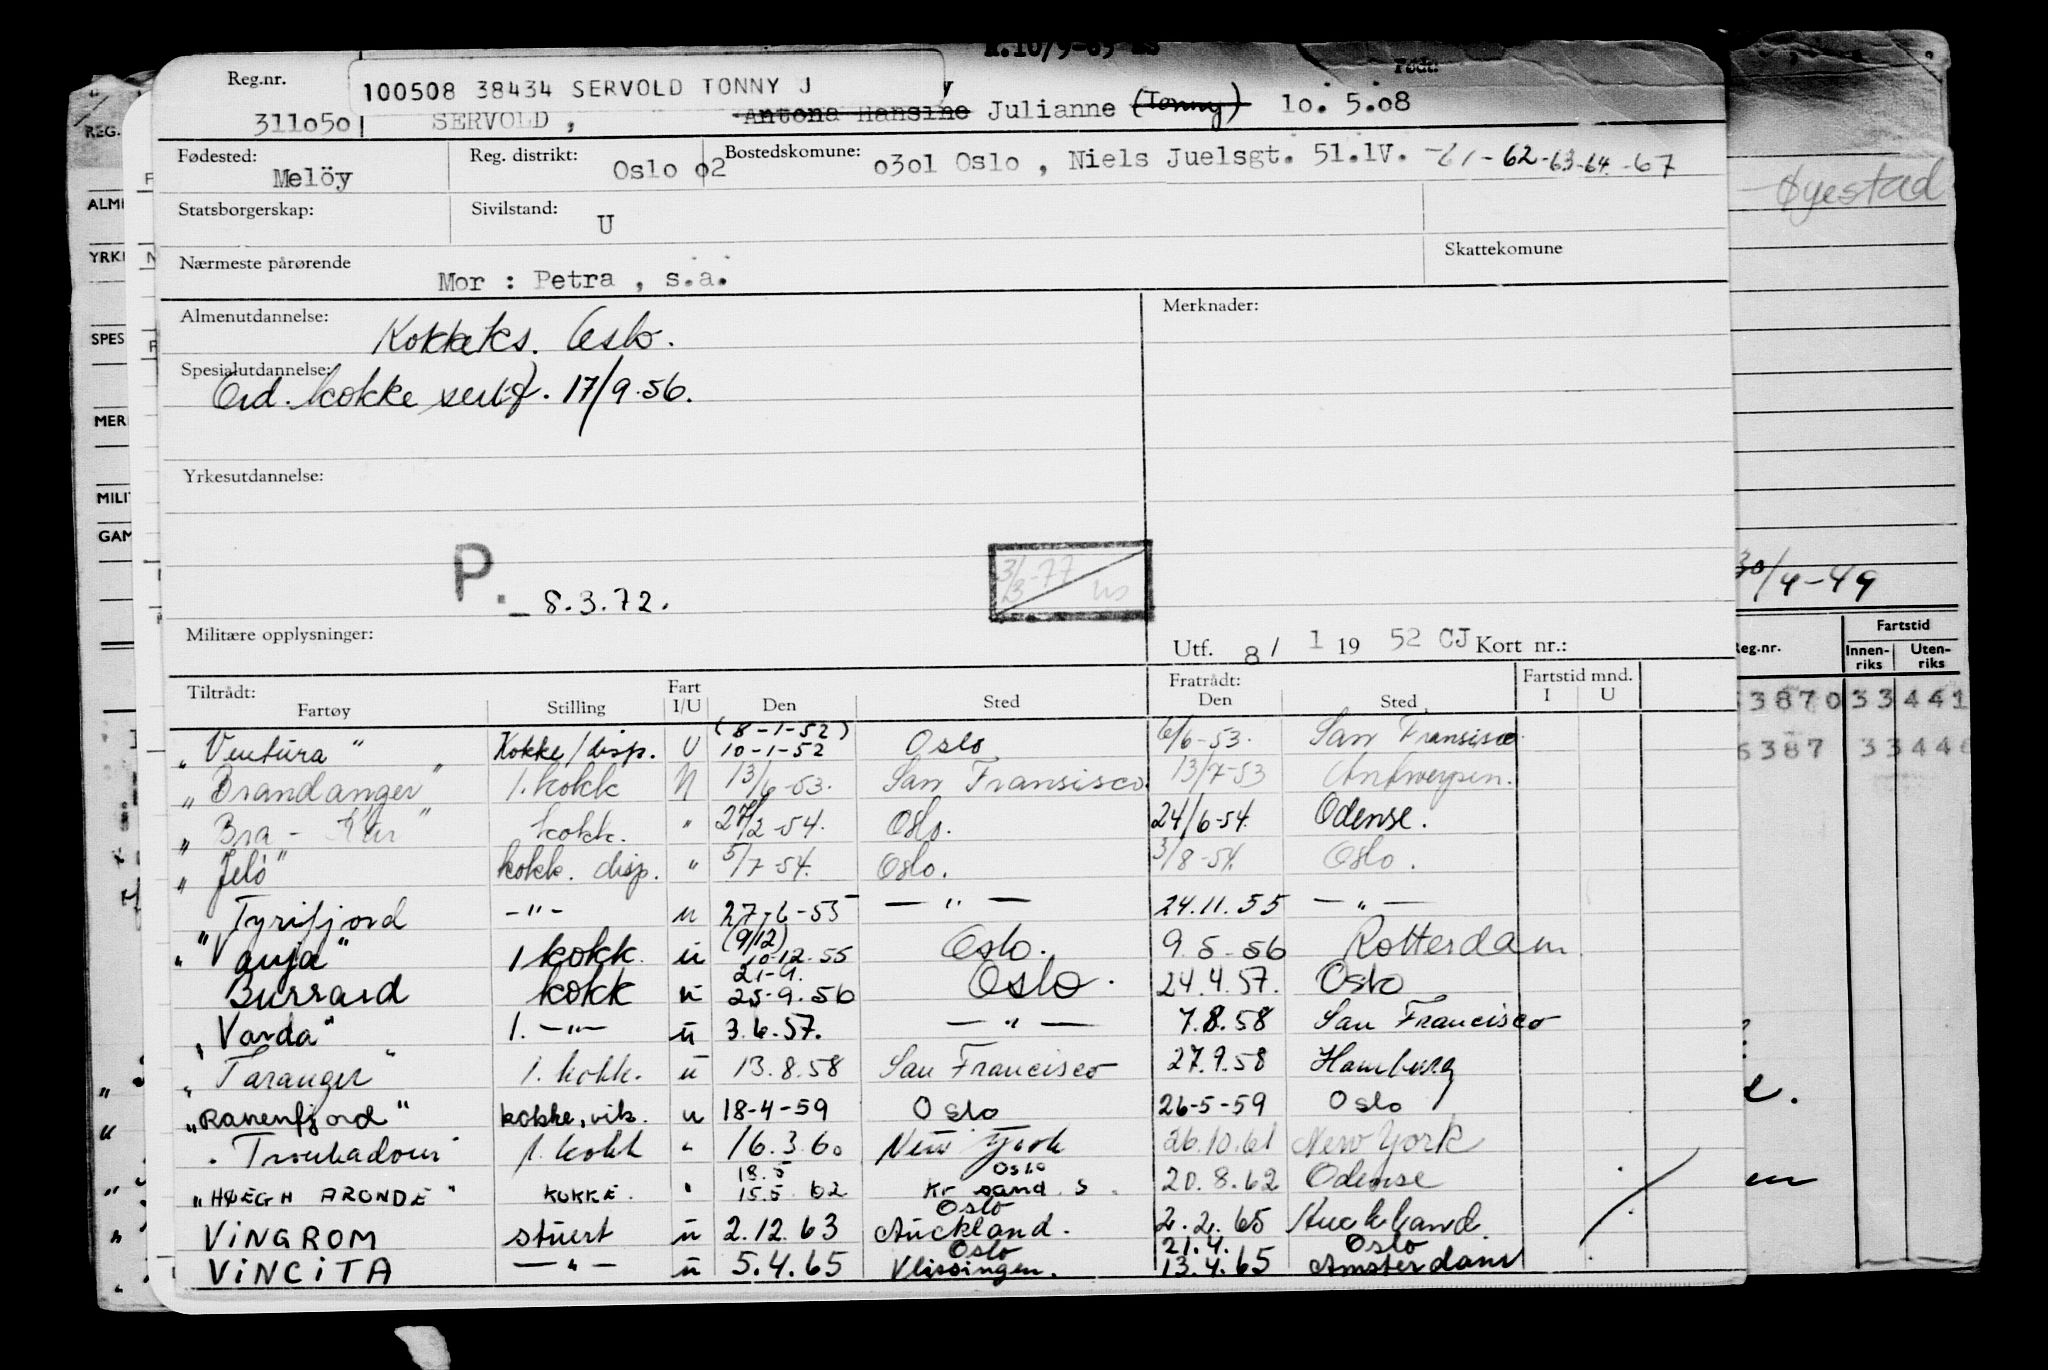 Reg.nr. 100508 38434 SERVOLD TONNY J Født:
311o5o SERVOLD , Antona Hansine Julianne (Tonny) 1o. 5.o8
Fødested: Melöy Reg. distrikt: Oslo o2 Bostedskomune: o3o1 Oslo , Niels Juelsgt. 51.1V. -61-62-63-64-67
Statsborgerskap: Sivilstand: U
Nærmeste pårørende Mor : Petra , s.a. Skattekomune
Almenutdannelse: Kokkeks. Oslo. Merknader:
Spesialutdannelse:
Ord. kokke sertf. 17/9.56.
Yrkesutdannelse:
P. - 8.3.72. 3/3-77
Militære opplysninger: Utf. 8 / 1 19 52 CJ Kort nr.:
Tiltrådt: Fart Fratrådt: Fartstid mnd.
Fartøy Stilling I/U Den Sted Den Sted I U
(8-1-52)
„Ventura" Kokke/disp. U 10-1-52 Oslo 6/6-53. San Fransisco
„Brandanger" 1. kokk U 13/6-53. San Fransisco. 13/7-53 Antwerpen.
„Bra-Kar" kokk. " 27/2-54. Oslo. 24/6-54. Odense.
„Jelö" kokk. disp. " 5/7-54. Oslo. 3/8-54. Oslo.
„Tyrifjord -"- u 27-6-55 — " — 24.11.55 — " —
(9/12)
„Vanja" 1 kokk. u 10-12-55 Oslo. 9.5-56 Rotterdam
21-9.
Burrard kokk u 25-9.56 Oslo. 24.4.57. Oslo
„Varda" 1. -"- u 3.6.57. — " — 7.8.58 San Francisco
„Taranger" 1. kokk. u 13.8.58 San Francisco 27.9.58 Hamburg
„Ranenfjord" kokke, vik. u 18-4-59 Oslo 26-5-59 Oslo
„Troubadour" 1. kokk " 16.3.60 New York 26.10.61 New York
18.5 Oslo
„HØEGH ARONDE" KOKKE. " 15.5 62 Kr sand. S. 20.8.62 Odense
Oslo
VINGROM stuert u 2.12.63 Auckland. 2.2.65 Auckland.
Oslo 21.4. Oslo
VINCITA — " — u 5.4.65 Vlissingen. 13.4.65 Amsterdam
REG.
ALM
YRK
SPES
MER
MILI
GAM
Øyestad
30/4-49
Reg.nr. Fartstid
Innen-riks Uten-riks
3870 33441
6387 3344